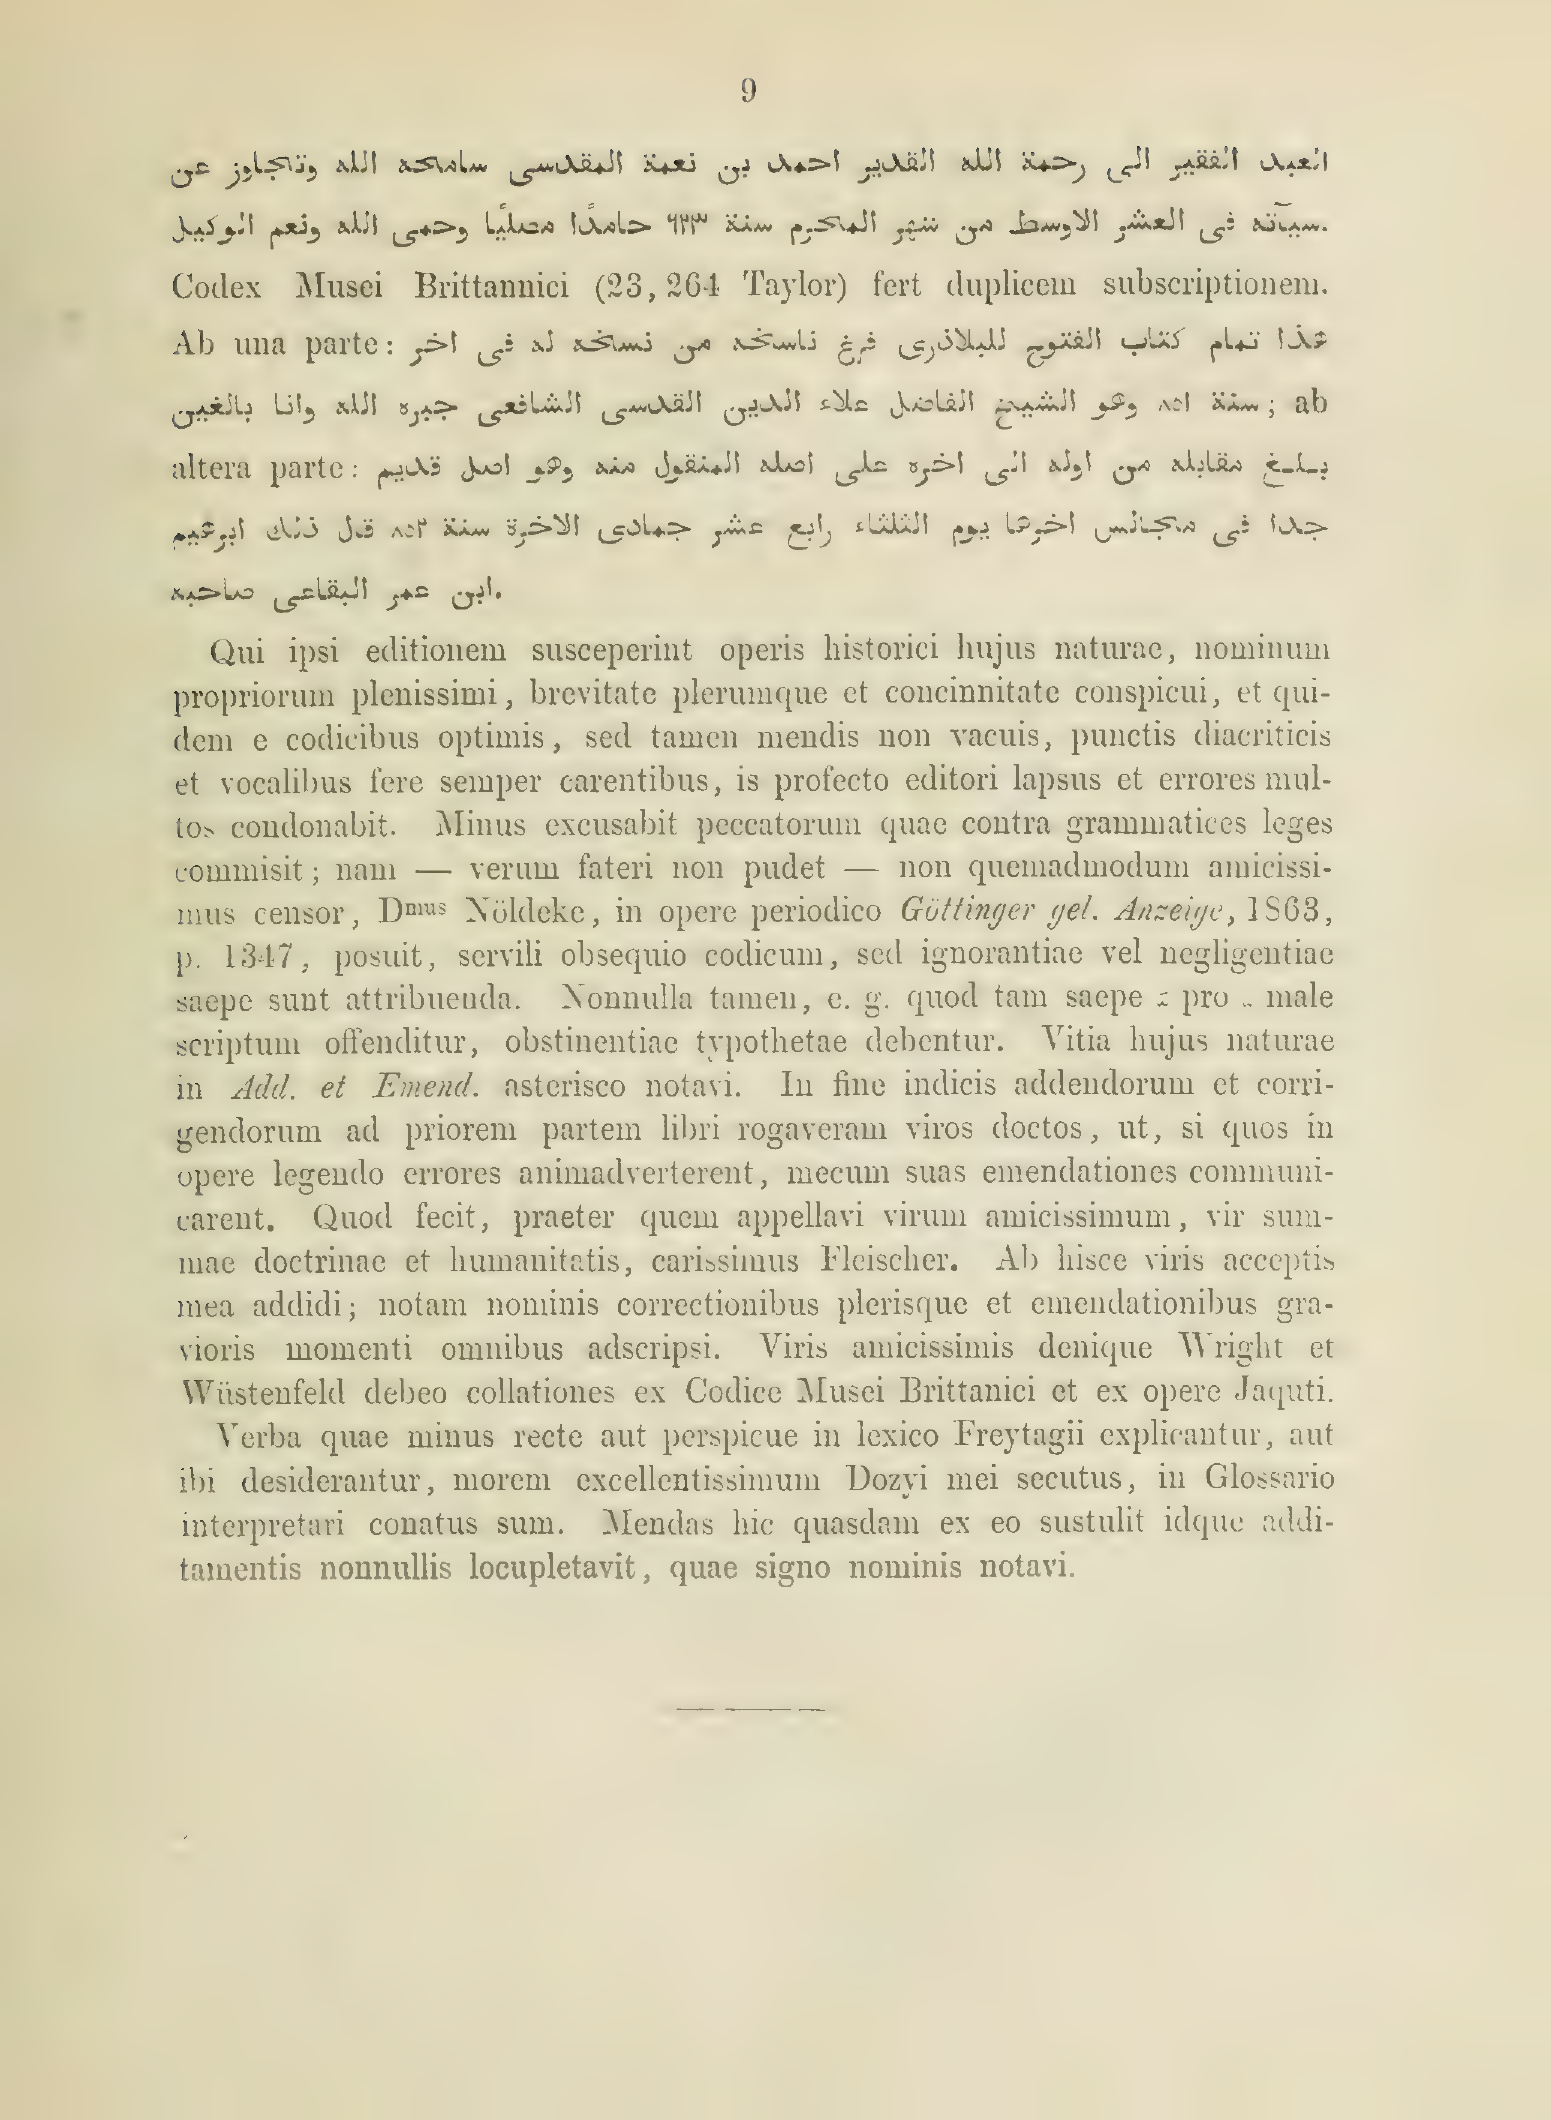 9
العبد الفقير الى رحمة الله القدير احمد بن نعمة المقدسى سامحه الله وتجاوز عن
سيآته فى العشر الاوسط من شهر المحرم سنة ٦٢٣ حامدًا مصليًا وحمى الله ونعم الوكيل.
Codex Musei Brittannici (23, 264 Taylor) fert duplicem subscriptionem.
Ab una parte: هذا تمام كتاب الفتوح للبلاذرى فرغ ناسخه من نسخه له فى اخر
سنة ٨٥١ وهو الشيخ الفاضل علاء الدين القدسى الشافعى جبره الله وانا بالغين; ab
altera parte: بـلـغ مقابله من اوله الى اخره على اصله المنقول منه وهو اصل قديم
جدا فى مجالس اخرها يوم الثلثاء رابع عشر جمادى الاخرة سنة ٨٥٢ قال ذلك ابرهيم
ابن عمر البقاعى صاحبه.
Qui ipsi editionem susceperint operis historici hujus naturae, nominum
propriorum plenissimi, brevitate plerumque et concinnitate conspicui, et qui-
dem e codicibus optimis, sed tamen mendis non vacuis, punctis diacriticis
et vocalibus fere semper carentibus, is profecto editori lapsus et errores mul-
tos condonabit. Minus excusabit peccatorum quae contra grammatices leges
commisit; nam — verum fateri non pudet — non quemadmodum amicissi-
mus censor, Dmus Nöldeke, in opere periodico Göttinger gel. Anzeige, 1863,
p. 1347, posuit, servili obsequio codicum, sed ignorantiae vel negligentiae
saepe sunt attribuenda. Nonnulla tamen, e. g. quod tam saepe pro male
scriptum offenditur, obstinentiae typothetae debentur. Vitia hujus naturae
in Add. et Emend. asterisco notavi. In fine indicis addendorum et corri-
gendorum ad priorem partem libri rogaveram viros doctos, ut, si quos in
opere legendo errores animadverterent, mecum suas emendationes communi-
carent. Quod fecit, praeter quem appellavi virum amicissimum, vir sum-
mae doctrinae et humanitatis, carissimus Fleischer. Ab hisce viris acceptis
mea addidi; notam nominis correctionibus plerisque et emendationibus gra-
vioris momenti omnibus adscripsi. Viris amicissimis denique Wright et
Wüstenfeld debeo collationes ex Codice Musei Brittanici et ex opere Jaquti.
Verba quae minus recte aut perspicue in lexico Freytagii explicantur, aut
ibi desiderantur, morem excellentissimum Dozyi mei secutus, in Glossario
interpretari conatus sum. Mendas hic quasdam ex eo sustulit idque addi-
tamentis nonnullis locupletavit, quae signo nominis notavi.